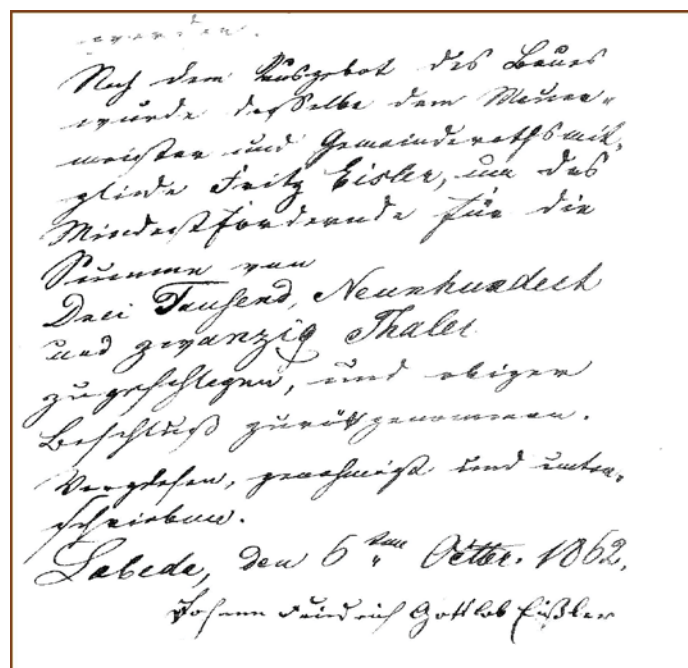 werden.
Nach dem Ausgebot des Baues
wurde derselbe dem Maurer-
meister und Gemeinderathsmit-
gliede Fritz Eisler, um das
Mindestfordernde für die
Summe von
Drei Tausend, Neunhundert
und zwanzig Thaler
zugeschlagen, und obiger
Beschluß zurückgenommen.
Vorgelesen, genehmigt und unter-
schrieben.
Lobeda, den 6ten Octbr. 1862.
Johann Friedrich Gottlob Eißler